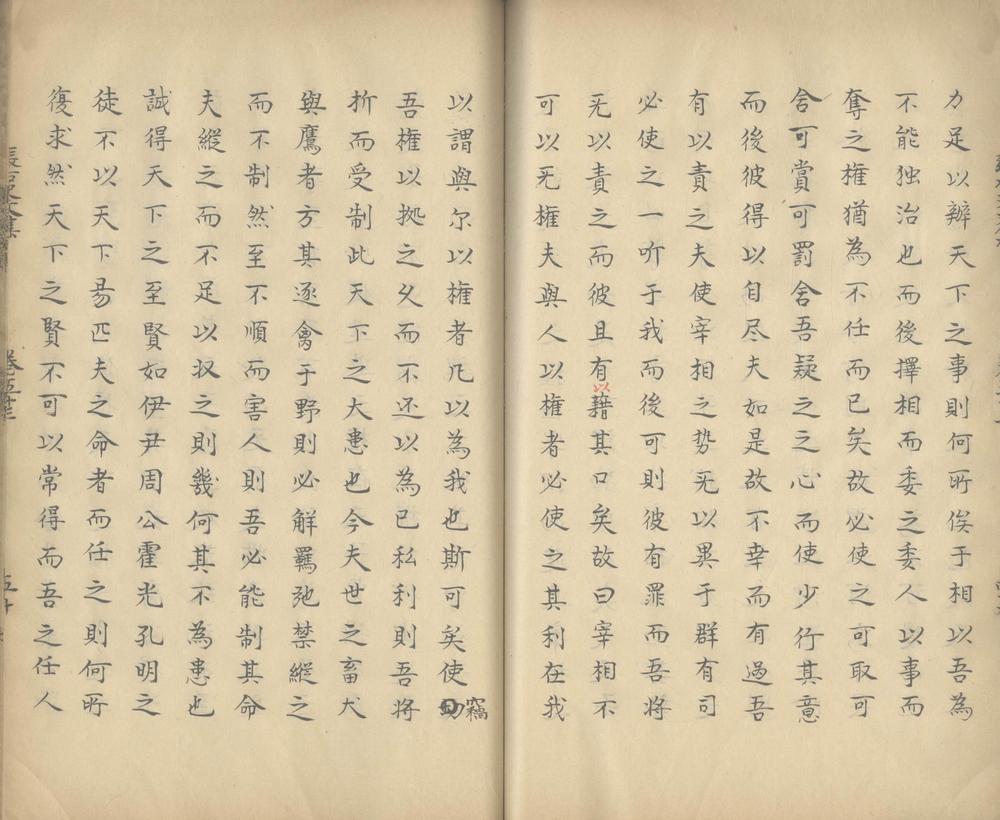 力足以辯天下之事則何所俟于相以吾為
不能独治也而後擇相而委之委人以事而
奪之権猶為不任而已矣故必使之可取可
舍可賞可罰舍吾疑之之心而使少行其意
而後彼得以自尽夫如是故不幸而有過吾
有以責之夫使宰相之势无以異于群有司
必使之一听于我而後可則彼有罪而吾将
无以責之而彼且有以藉其口矣故曰宰相不
可以无権夫與人以権者必使之其利在我
以謂與尔以権者凡以為我也斯可矣使竊
吾権以拠之久而不还以為已私利則吾将
折而受制此天下之大患也今夫世之畜犬
與鷹者方其逐禽于野則必解羈弛禁縱之
而不制然至不順而害人則吾必能制其命
夫縱之而不足以収之則幾何其不為患也
誠得天下之至賢如伊尹周公霍光孔明之
徒不以天下昜匹夫之命者而任之則何所
復求然天下之賢不可以常得而吾之任人